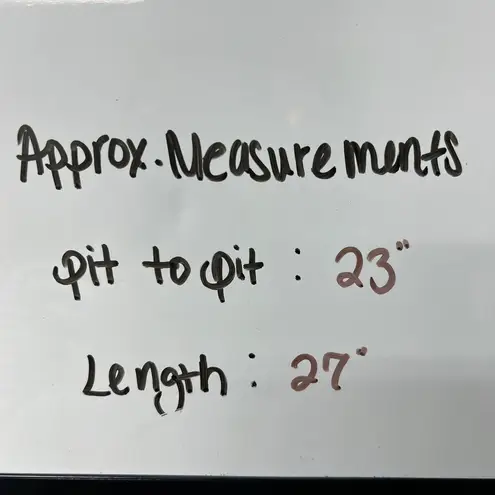 Approx. Measurements
pit to pit : 23"
Length : 27"